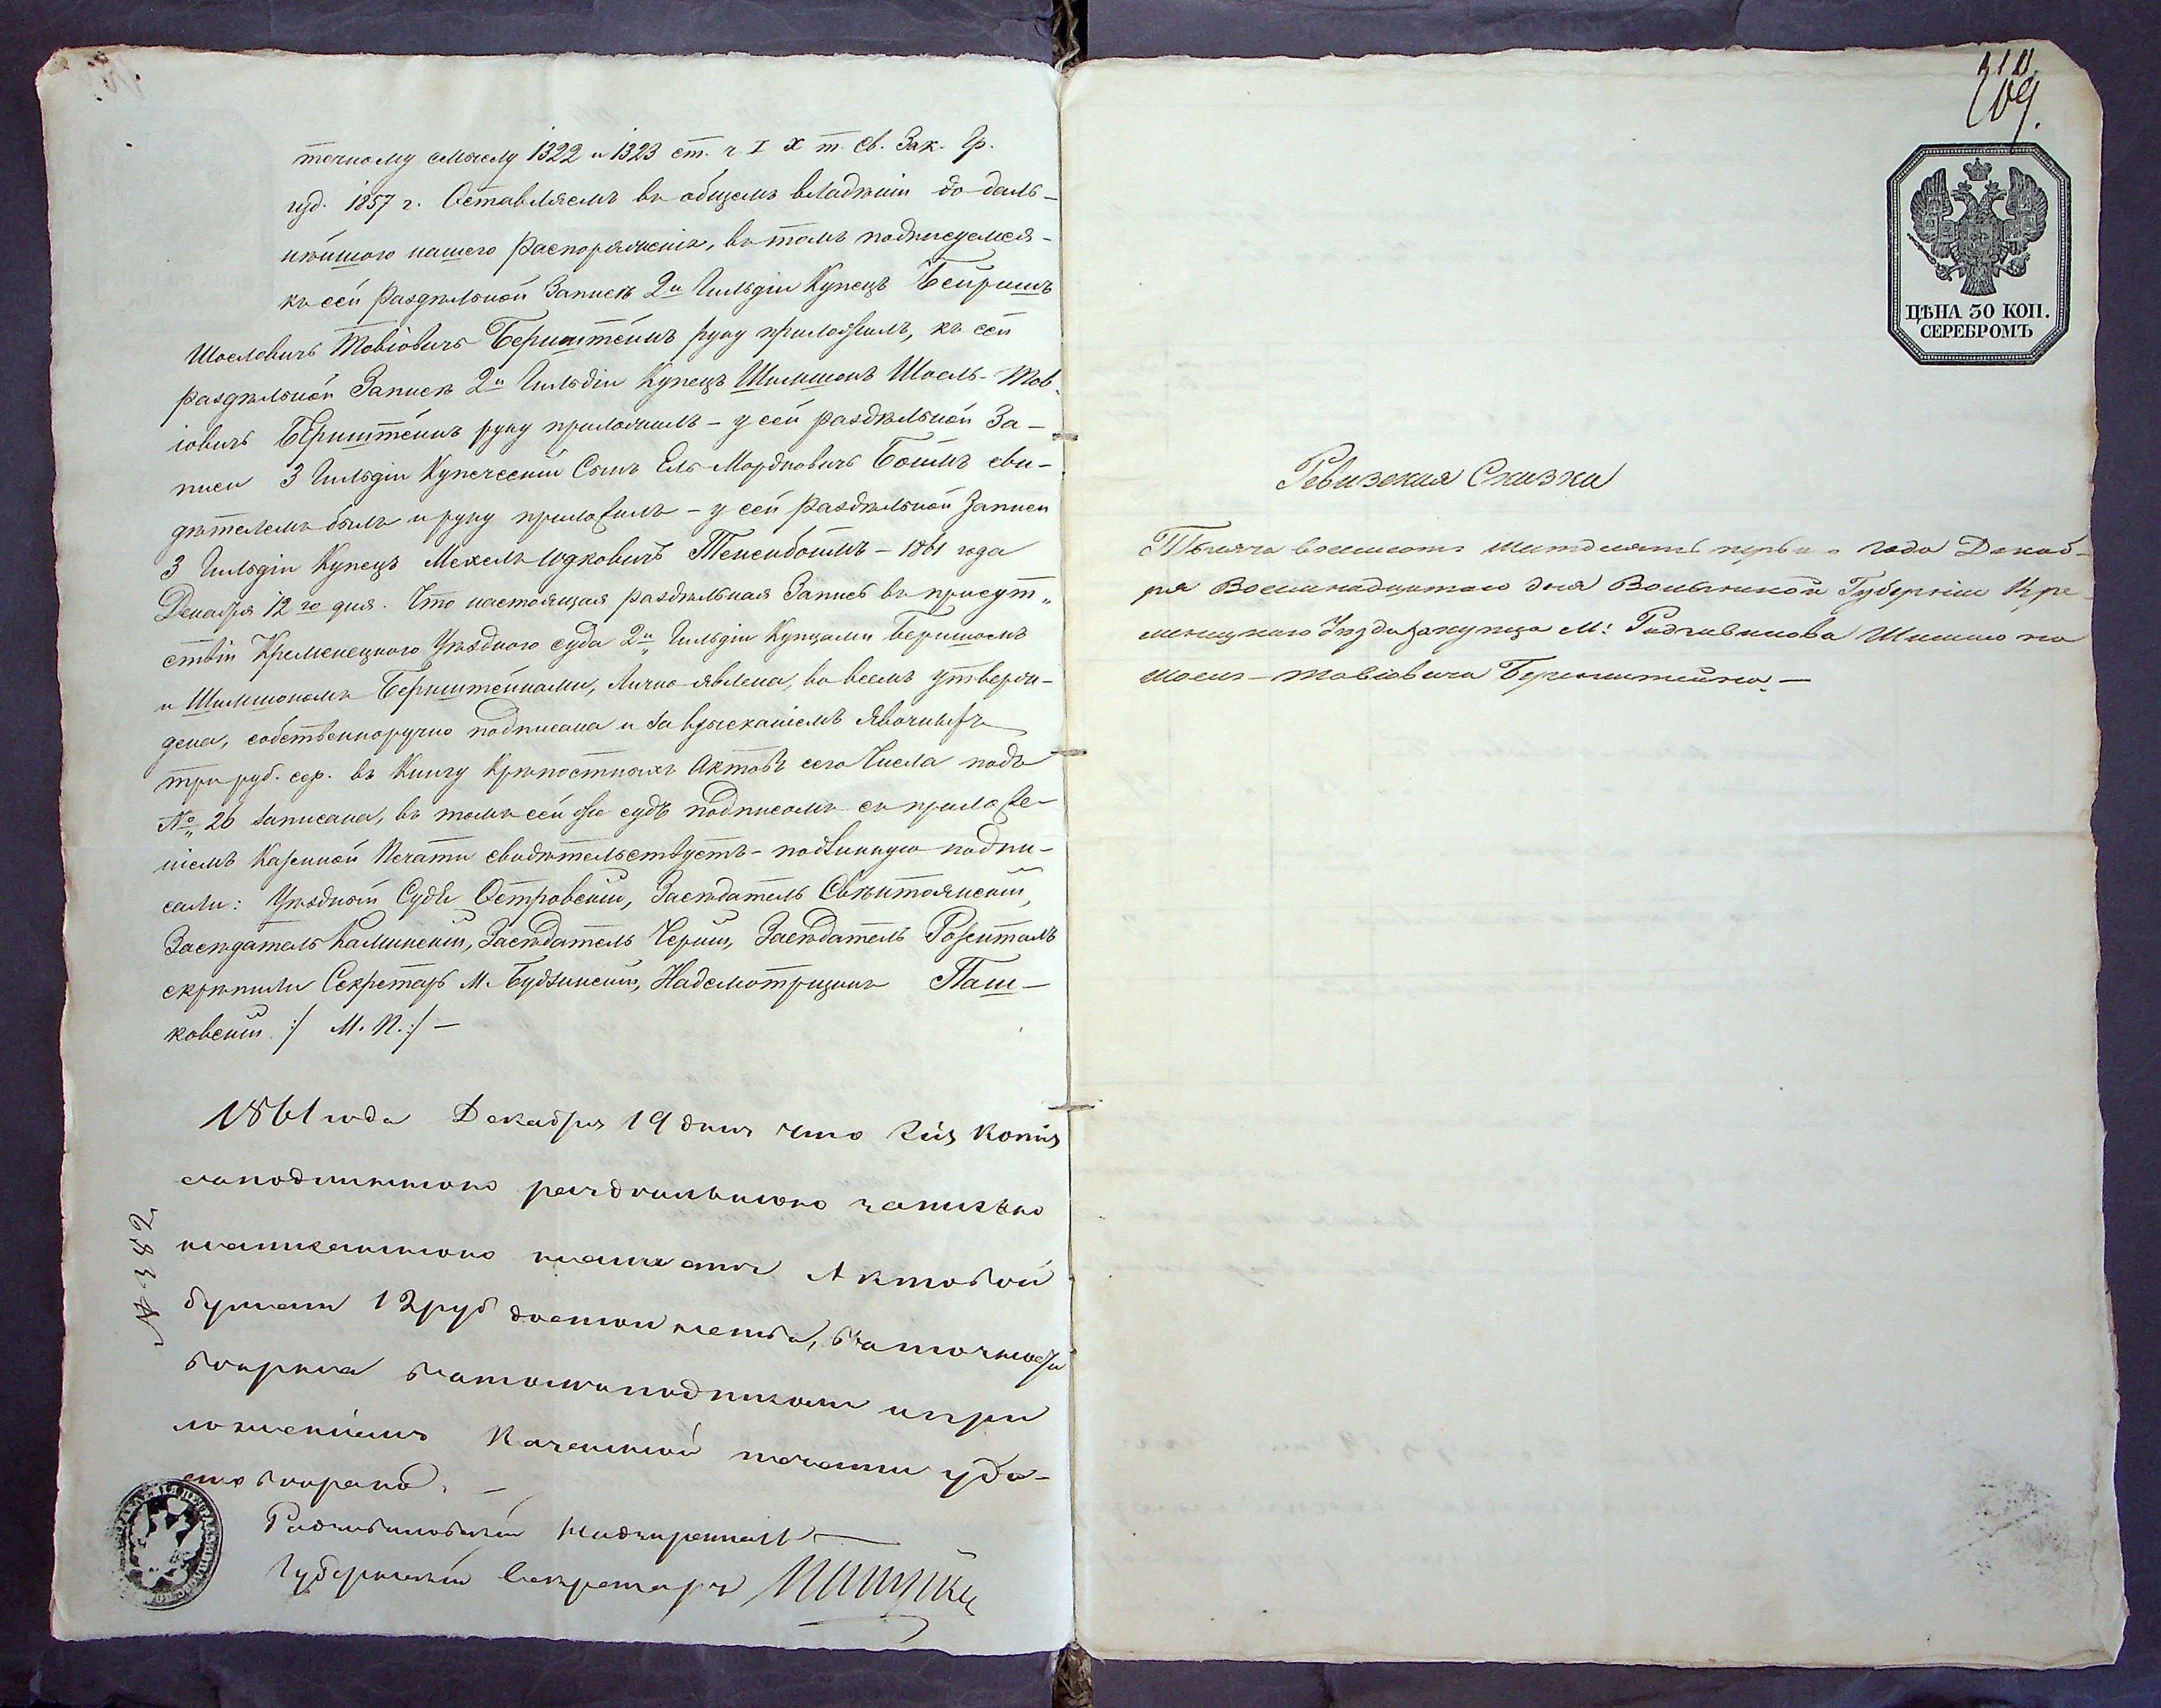 точному смыслу 1322 и 1323 ст. ч. I X т. Св. Зак. Гр.
изд. 1857 г. Оставляемъ въ общемъ владѣніи до даль-
нѣйшого нашего распоряженія, въ томъ подписуемся -
къ сей раздѣльной Записѣ 2й Гильдіи Купецъ Бейришъ
Шоелевичъ Товіовичъ Бернштейнъ руку приложилъ, къ сей
раздѣльной Записѣ 2й Гильдіи Купецъ Шимшонъ Шоель-Тов-
іовичъ Бернштейнъ руку приложилъ - у сей раздѣльной За-
писи 3 Гильдіи Купеческій Сынъ Ель Мордковичъ Боймъ сви-
дѣтелемъ былъ и руку приложилъ - у сей раздѣльной Записи
3 Гильдіи Купецъ Мехель Юдковичъ Тененбоймъ - 1861 года
Декабря 12го дня. Что настоящая раздѣльная Запись въ присут-
ствіи Кременецкого Уѣзднаго суда 2й Гильдіи Купцами Беришомъ
и Шимшономъ Бернштейнами, Лично явлена, во всемъ утверж-
дена, собственноручно подписана и за взысканіемъ Явочныхъ
три руб. сер. въ Книгу Крѣпостныхъ Актовъ сего Числа подъ
№ 26 записана, въ томъ сей же судъ подписомъ съ приложе-
ніемъ Казенной Печати свидѣтельствуетъ - подлинную подпи-
сали: Уѣздный Судья Островскій, Засѣдатель Свѣнтоянскій,
Засѣдатель Калинскій, Засѣдатель Черній, Засѣдатель Розенталь
скрѣпили Секретарь М. Будзинскій, Надсмотрщикъ Паш-
ковскій :/ М. П. :/ -
1861 года Декабря 19 дня что сія Копія
съ подлинною раздѣльною записью
написанною на листѣ Актовой
бумаги 12 руб достоинства, въ точности
вѣрна въ томъ подписомъ и при
ложеніемъ Казенной печати удо-
стовѣряю. -
Радзивиловскій Надзиратель
Губернскій Секретарь
№ 382
110.
109.
ЦѢНА 30 КОП.
СЕРЕБРОМЪ
Ревизская Сказка
Тысяча восемсотъ шестдесятъ перваго года Декаб-
ря Восемнадцатаго дня Волынской Губерніи Кре-
менецкаго Уѣзда купца М: Радзивилова Шимшона
Шоель - Товіовича Бернштейна. -